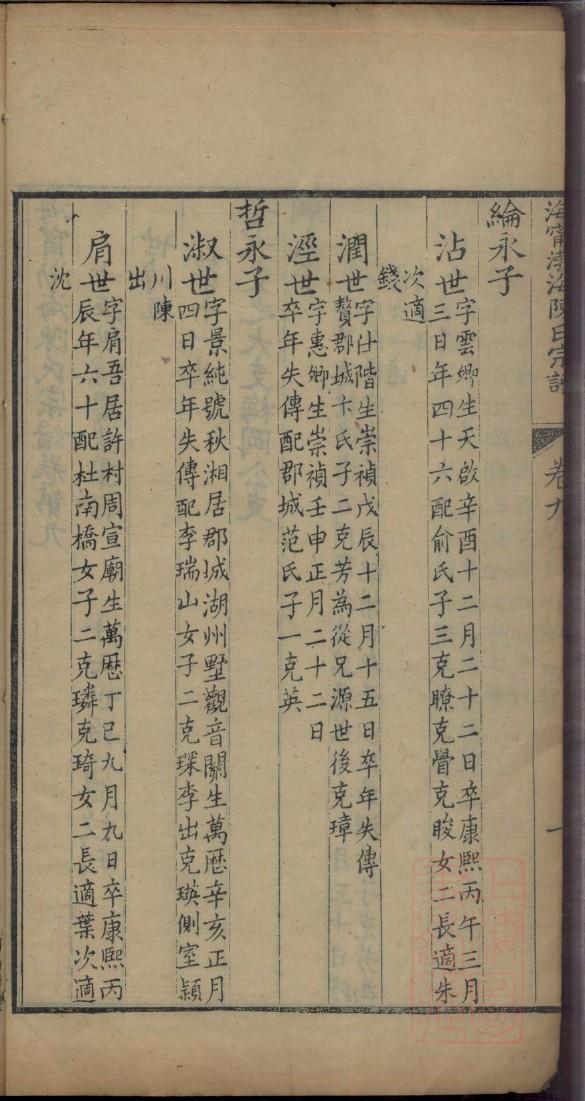 海甯渤海陳氏宗譜
卷九
一
綸永子
沾世
字雲卿生天啟辛酉十二月二十二日卒康熙丙午三月
三日年四十六配俞氏子三克瞭克覺克晙女二長適朱
次適
錢
潤世
字仕階生崇禎戊辰十二月十五日卒年失傳
贅郡城卞氏子二克芳為從兄源世後克璋
淫世
字惠卿生崇禎壬申正月二十二日
卒年失傳配郡城范氏子一克英
哲永子
淑世
字景純號秋湘居郡城湖州墅觀音關生萬歷辛亥正月
四日卒年失傳配李瑞山女子二克琛李出克瑛側室潁
川陳
出
肩世
字肩吾居許村周宣廟生萬歷丁巳九月九日卒康熙丙
辰年六十配杜南橋女子二克璘克琦女二長適葉次適
沈